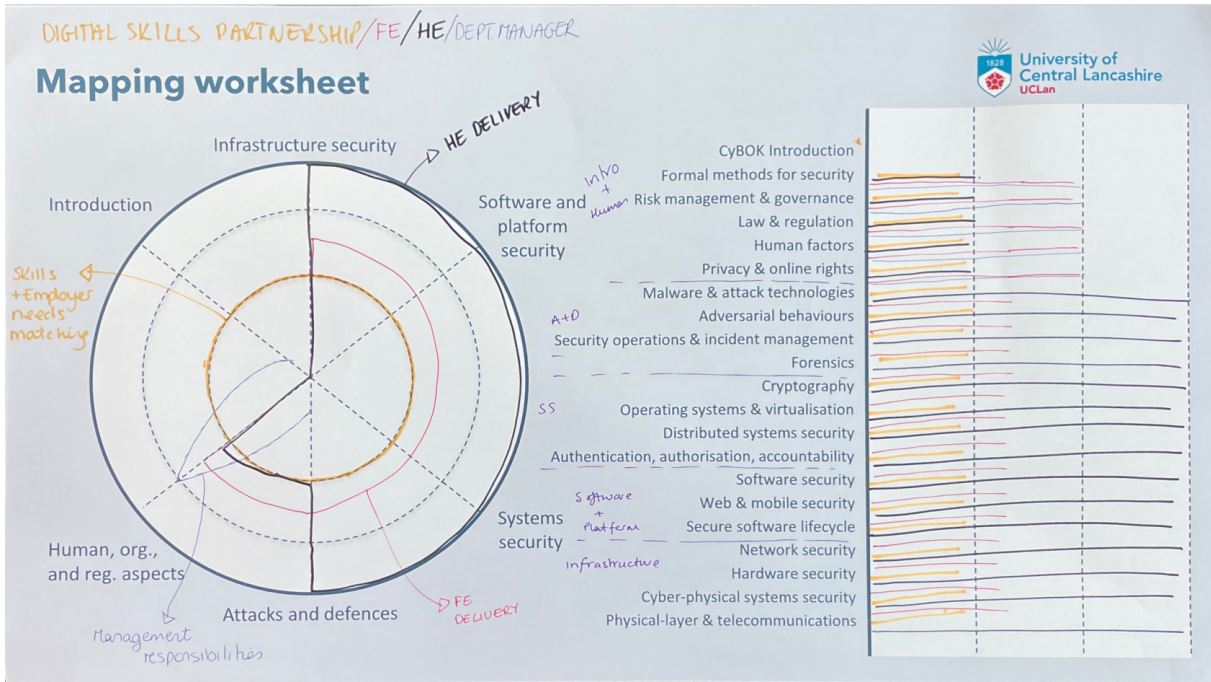 DIGITAL SKILLS PARTNERSHIP/FE/HE/DEPT.MANAGER
Mapping worksheet
1828
University of
Central Lancashire
UCLan
HE DELIVERY
Infrastructure security
Introduction
Software and
platform
security
Skills
+Employer
needs
matching
Systems
security
Human, org.,
and reg. aspects
Attacks and defences
FE
DELIVERY
Management
responsibilities
Intro
+
Human
A+D
SS
Software
+
Platform
Infrastructure
CyBOK Introduction
Formal methods for security
Risk management & governance
Law & regulation
Human factors
Privacy & online rights
Malware & attack technologies
Adversarial behaviours
Security operations & incident management
Forensics
Cryptography
Operating systems & virtualisation
Distributed systems security
Authentication, authorisation, accountability
Software security
Web & mobile security
Secure software lifecycle
Network security
Hardware security
Cyber-physical systems security
Physical-layer & telecommunications